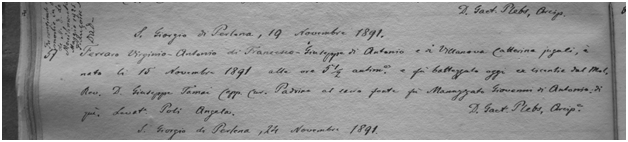 D. Gaet. Plebs, Arcip.
S. Giorgio di Perlena, 19 Novembre 1891.
Ferraro Virginio-Antonio di Francesco-Giuseppe di Antonio e di Villanova Catterina jugali, è
nato li 15 Novembre 1891 alle ore 5 1/2 antim.e e fu battezzato oggi ex licentia dal Mol.
Rev. D. Giuseppe Tomasi Capp. Cur. Padrino al sacro fonte fu Manuzzato Giovanni di Antonio di
qui. Levat. Poli Angela.
D. Gaet. Plebs, Arcip.e
S. Giorgio di Perlena, 24 Novembre 1891.